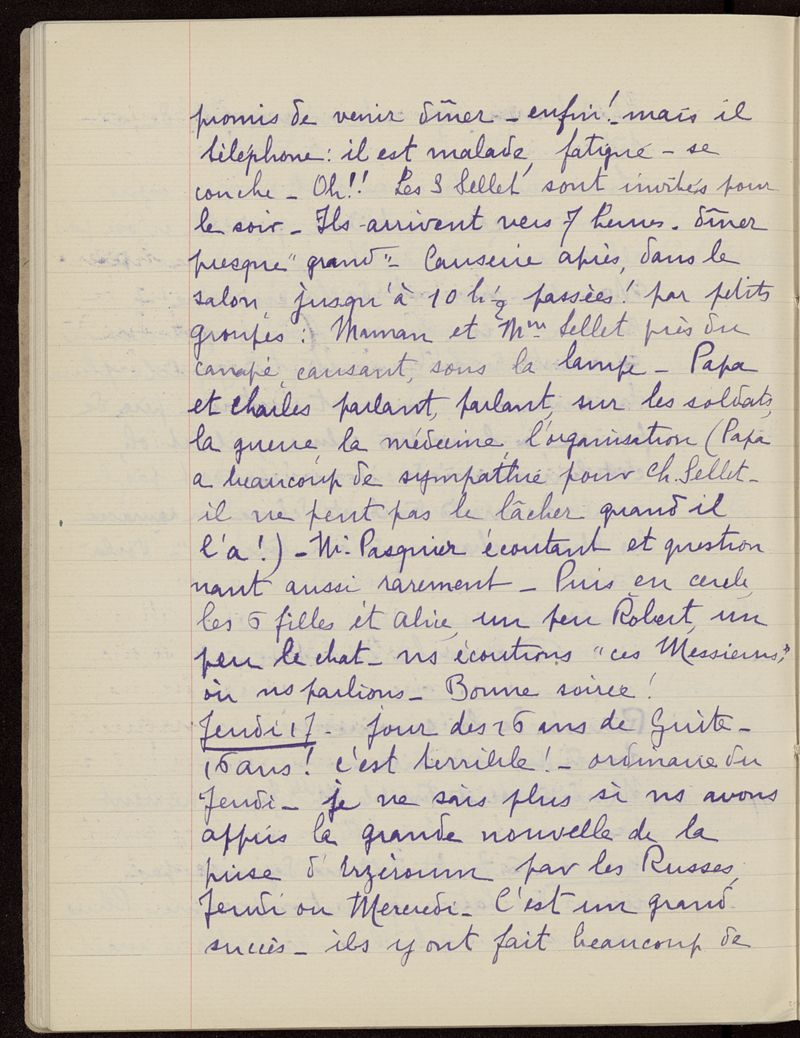 promis de venir dîner - enfin! - mais il
téléphone : il est malade, fatigué - se
couche - Oh!! Les 3 Sellet sont invités pour
le soir - Ils arrivent vers 7 heures. dîner
presque "grand" - Causerie après, dans le
salon, jusqu'à 10 h ½ passées! par petits
groupes : Maman et Mme Sellet près du
canapé, causant, sous la lampe - Papa
et Charles parlant, parlant, sur les soldats,
la guerre, la médecine, l'organisation (Papa
a beaucoup de sympathie pour Ch. Sellet -
il ne peut pas le lâcher quand il
l'a!) - Mr Pasquier écoutant et question
nant aussi rarement - Puis en cercle,
les 6 filles et Alice, un peu Robert, un
peu le chat - ns écoutions "ces Messieurs,"
où ns parlions - Bonne soirée!
Jeudi 17 - jour des 16 ans de Guite -
16 ans! c'est terrible! - ordinaire du
Jeudi - je ne sais plus si ns avons
appris la grande nouvelle de la
prise d'Erzéroum par les Russes,
Jeudi ou Mercredi - C'est un grand
succès - ils y ont fait beaucoup de